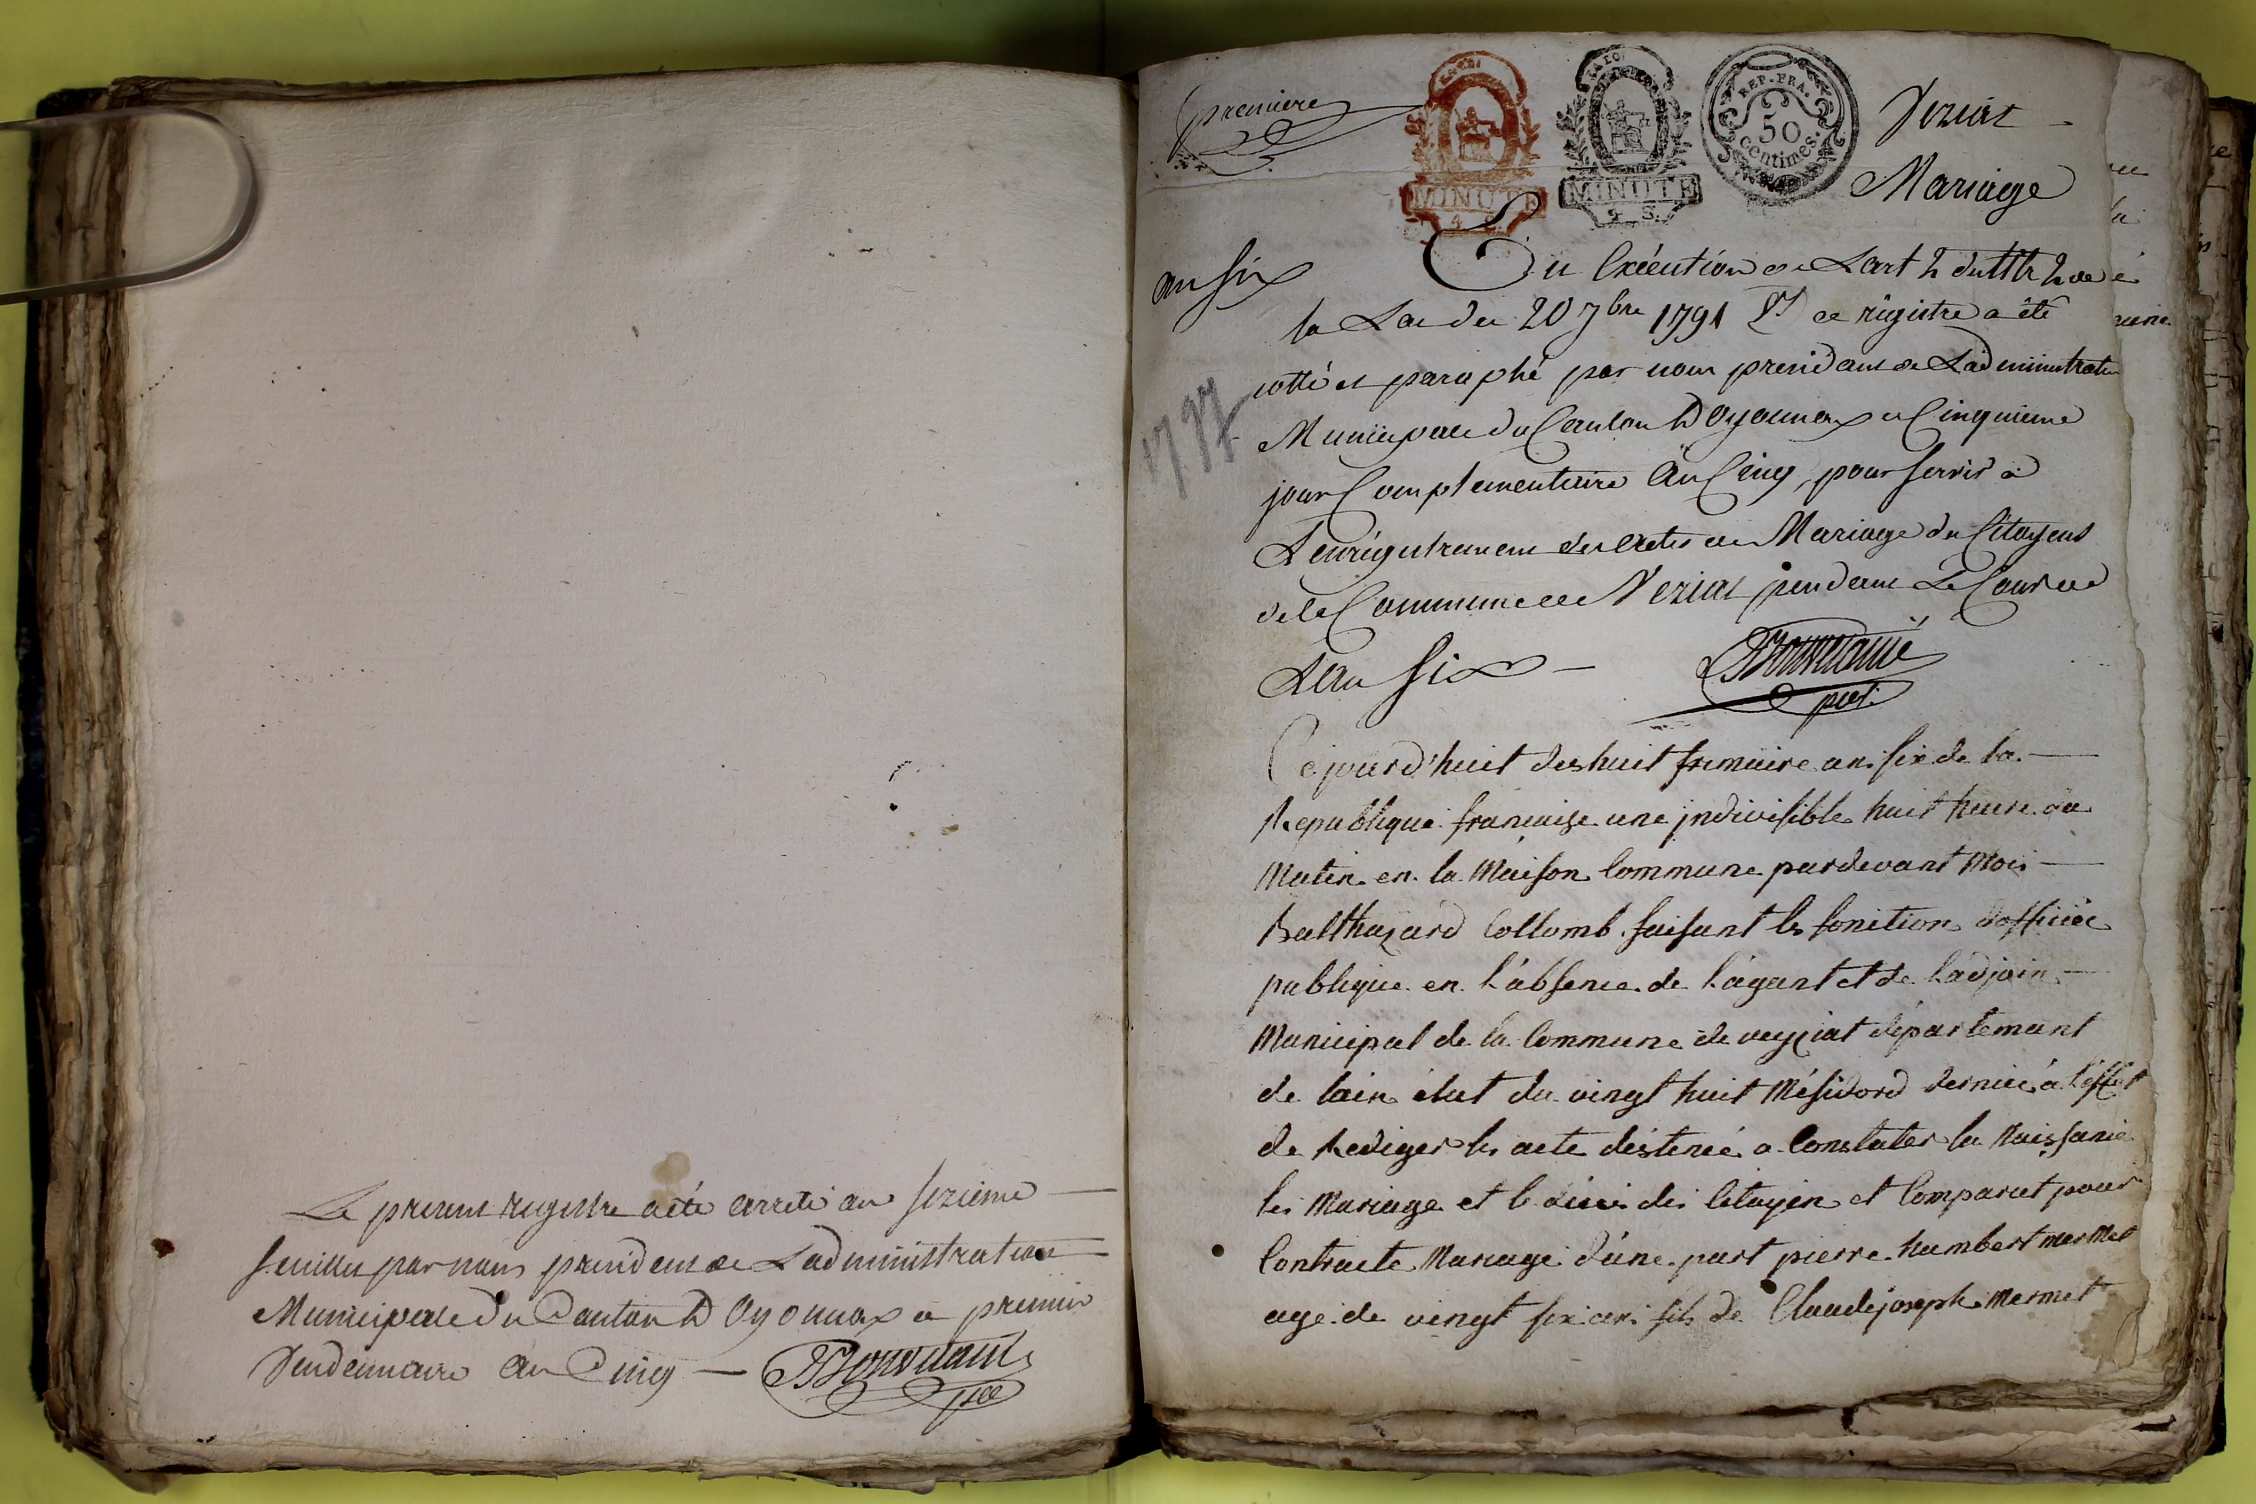 Le present registre a été arreté au sezieme
feuillet par nous president de Ladministration
Municipale du Canton D Oyonnax ce premier
Vendemiaire an Cinq
premiere
MINUTE
MINUTE
REP. FRA.
50
centimes.
Veziat
Mariage
an six
En Exécution de Lart 2 du ttr 2 de
la Loi du 20 7bre 1791 ce régistre a été
cotté et paraphé par nous president de Ladministration
Municipale du Canton D Oyonnax ce Cinquieme
1797
jour Complementaire An Cinq, pour servir à
Lenrégistrement des actes de Mariage des Citoyens
de la Commune de Veziat pendant Le Cours de
LAn Six
pdt.
Cejourd'huit deshuit frimaire an six de la
Republique française une jndivisible huit heure du
Matin en la Maison Commune pardevant Moi
Balthazard Collomb faisant les fonition dofficiée
publique en l'absence de l'agant et de l'adjoin
Municipal de la Commune de veyziat départemant
de lain élut du vingt huit Mésidord dernier à l'effet
de Rediger les acte destinéé a Constater la Naissance
les Mariage et le déces des Citoyen et Comparut pour
Contracte Mariage d'une part pierre humbert mermet
age de vingt six ans fils de Claudejoseph Mermet